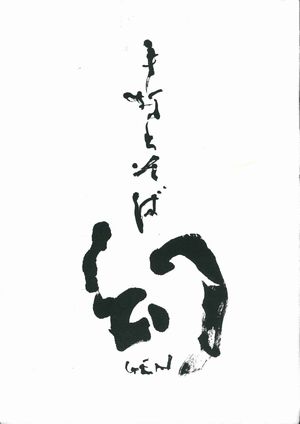 手打ちそば
幻
GEN